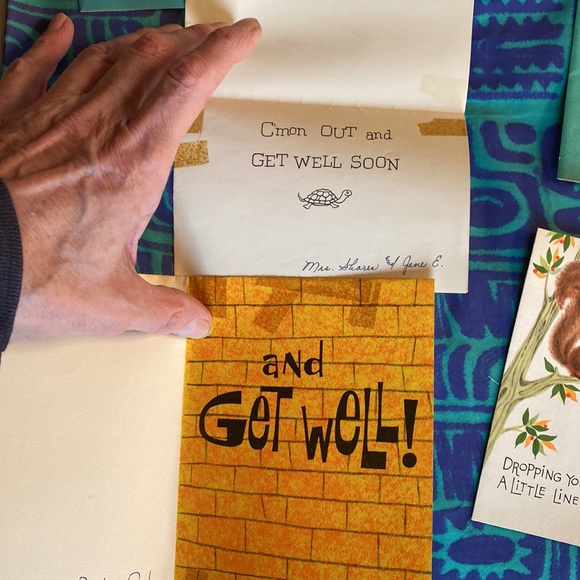 C'mon OUT and
GET WELL SOON
Mrs. Shares and Jane E.
and
GET WELL!
DROPPING YO
A LITTLE LINE